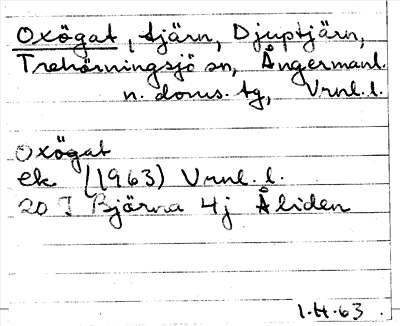 Oxögat, tjärn, Djuptjärn,
Trehörningsjö sn, Ångermanl.
n. doms. tg, Vrnl. l.
Oxögat
ek (1963) Vrnl. l.
20 I Björna 4j Åliden
1.H.63.